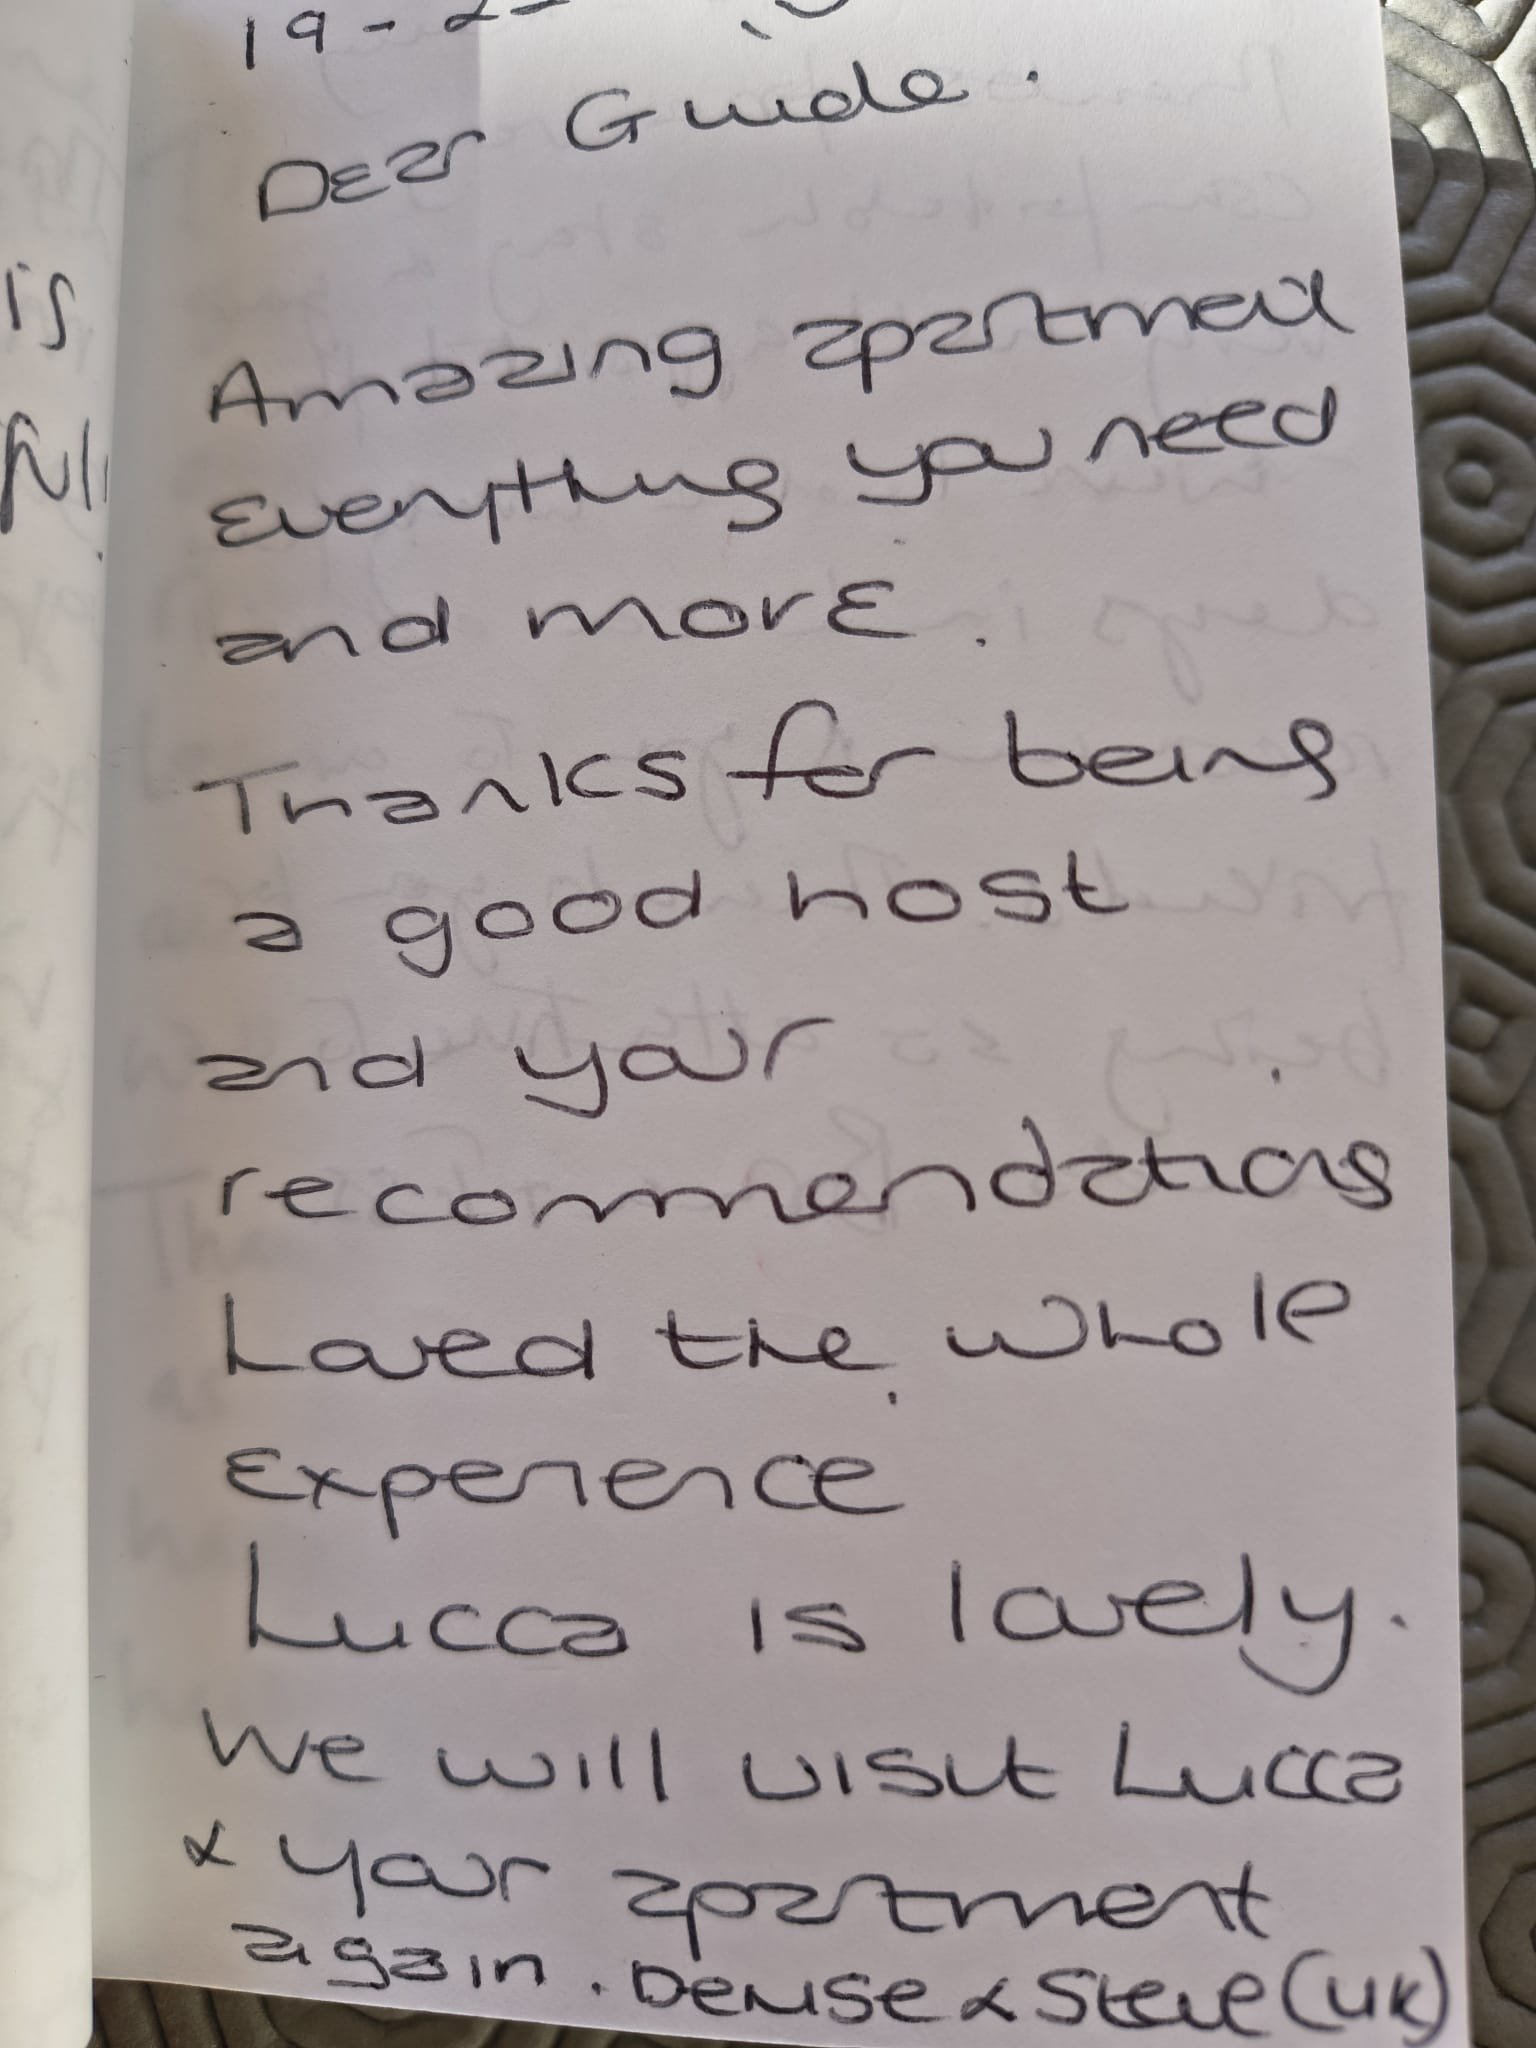 19 -
Dear Guide.
Amazing apartment
Everything you need
and more.
Thanks for being
a good host
and your
recommendations
Loved the whole
Experience
Lucca is lovely.
We will visit Lucca
& your apartment
again. Denise & Steve (UK)
is